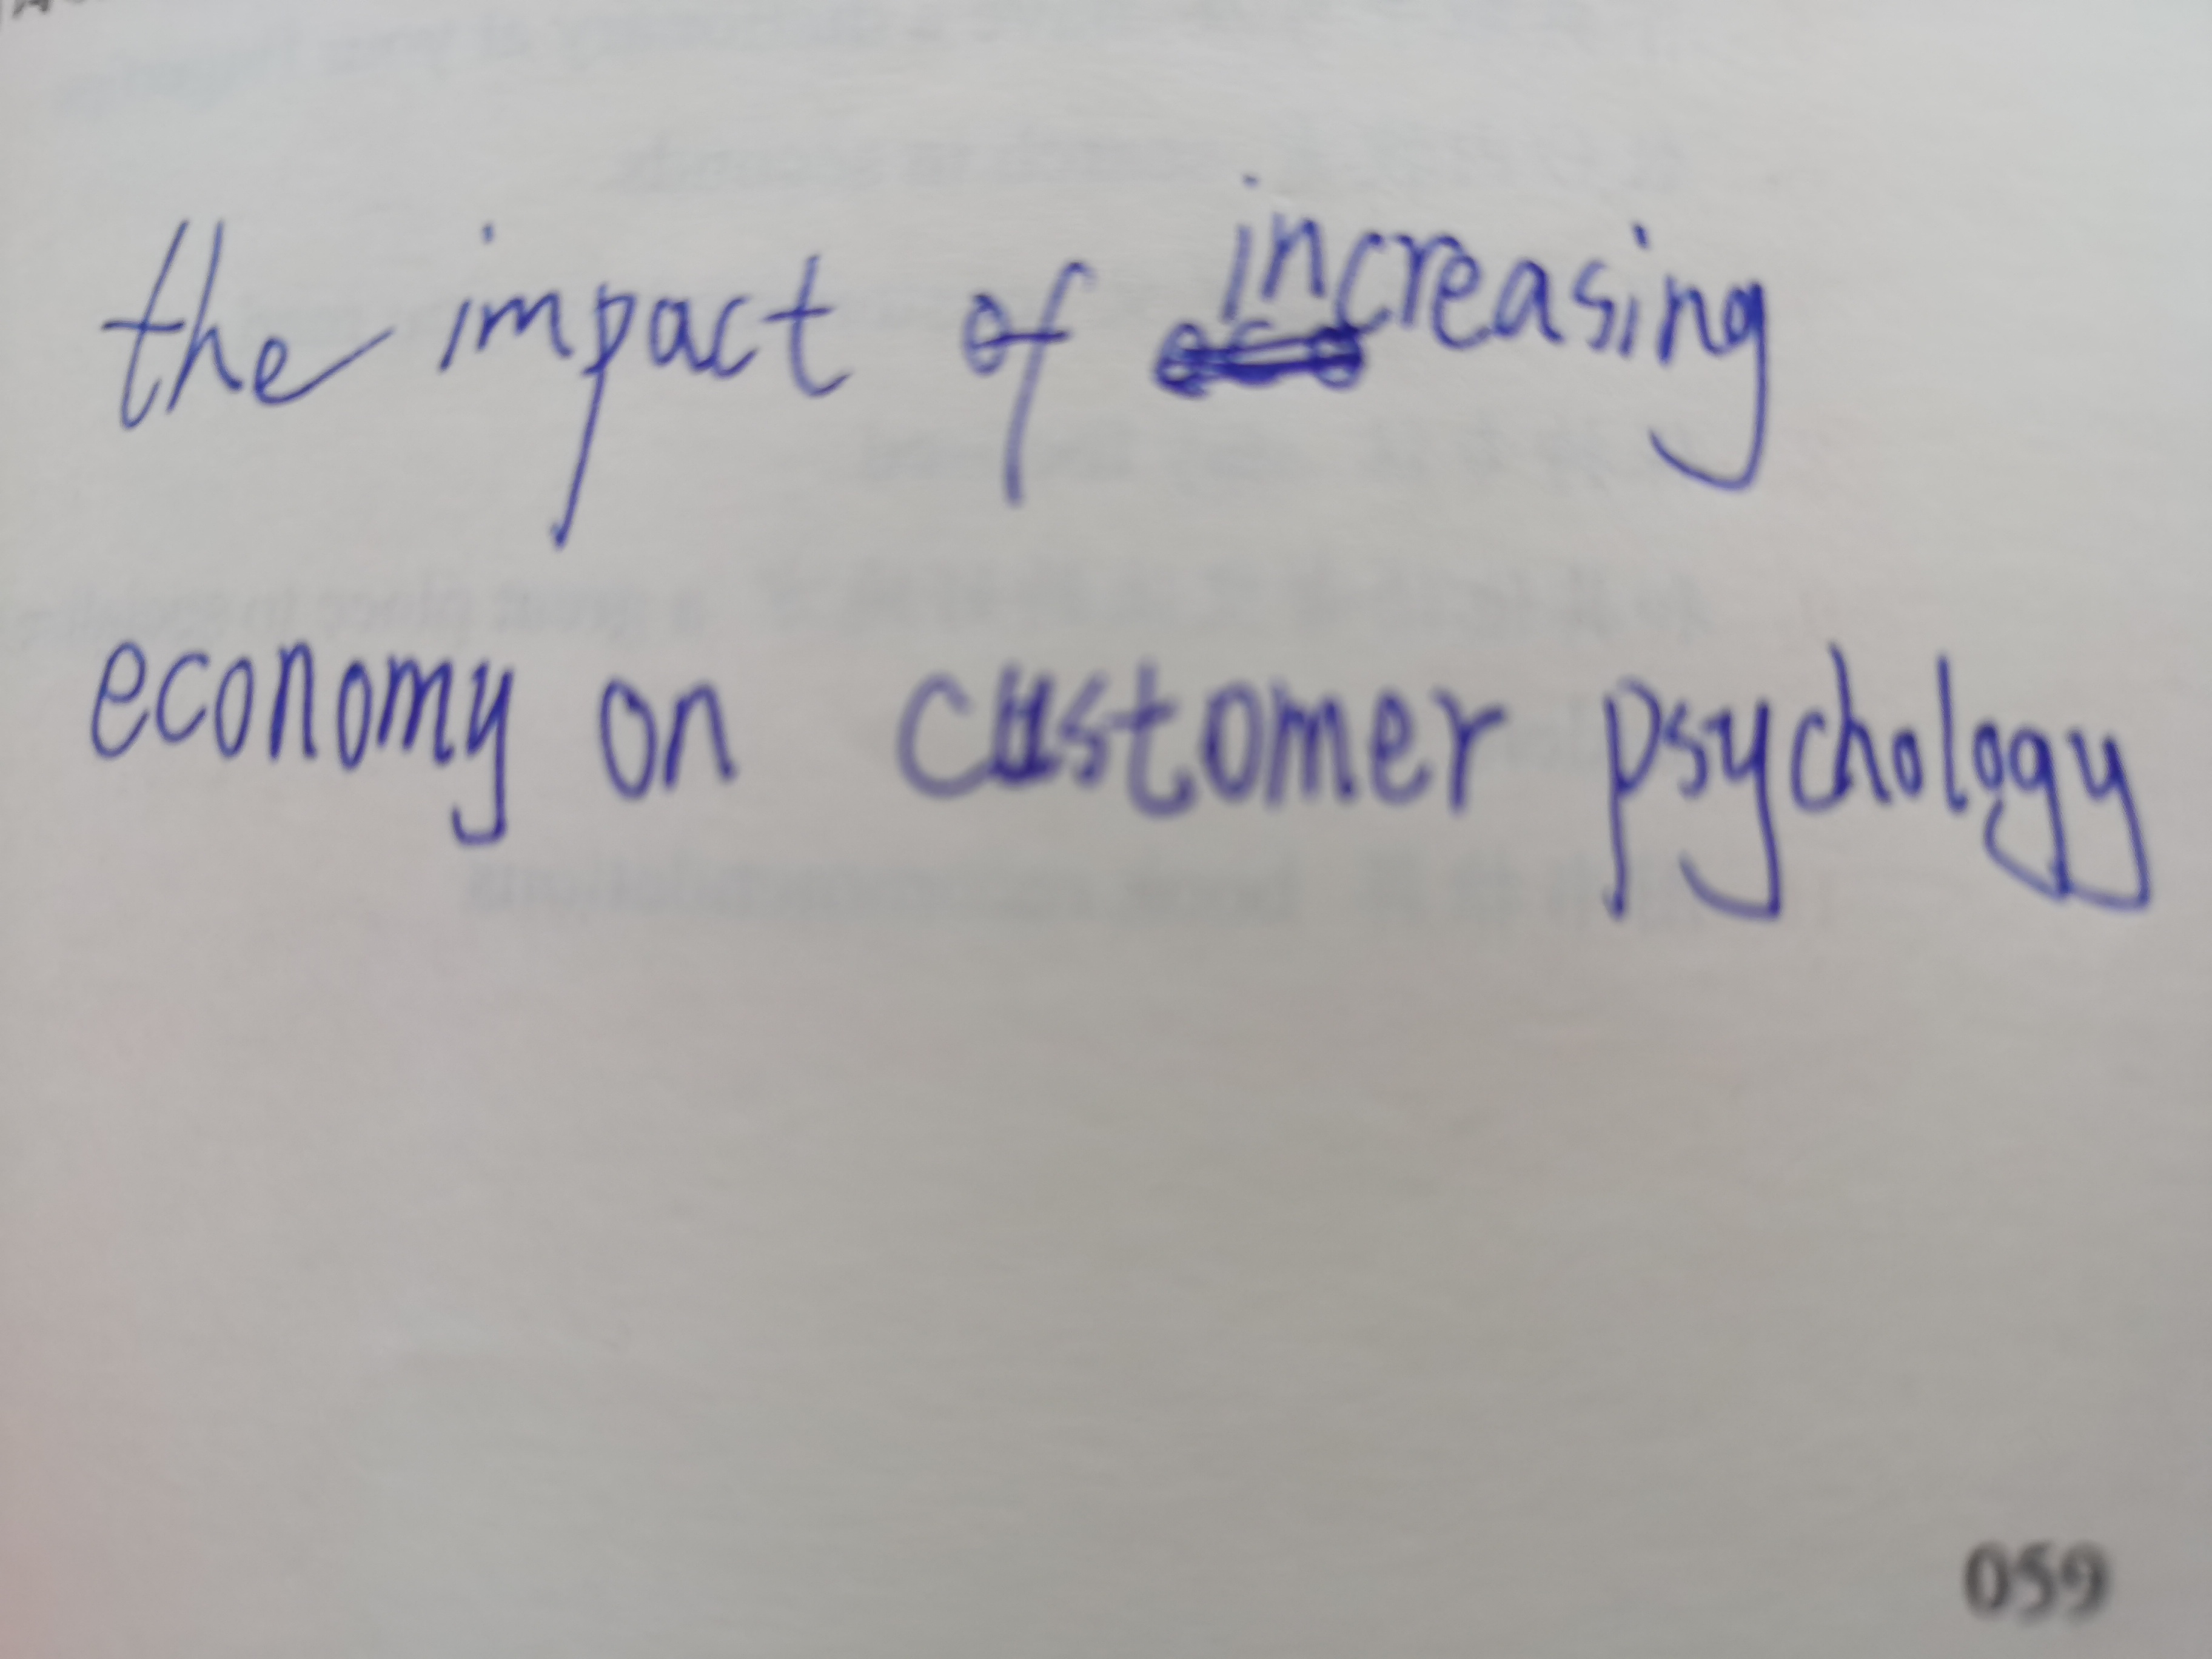 the impact of increasing
economy on customer psychology
059